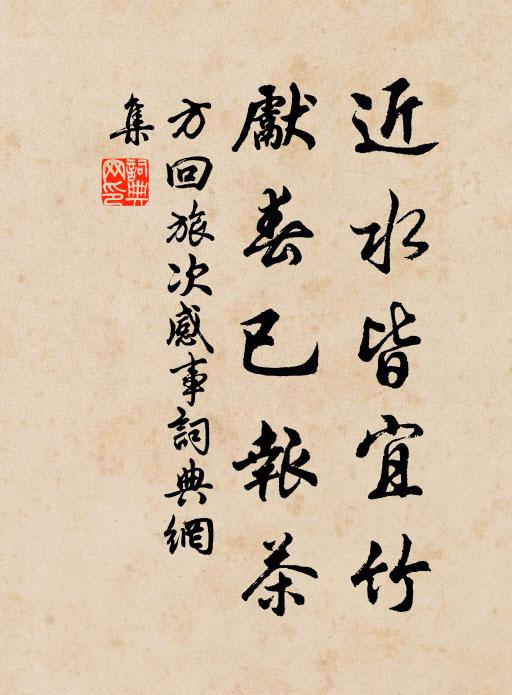 近水皆宜竹
獻春已報茶
方回旅次感事詞典網
集
詞典网印